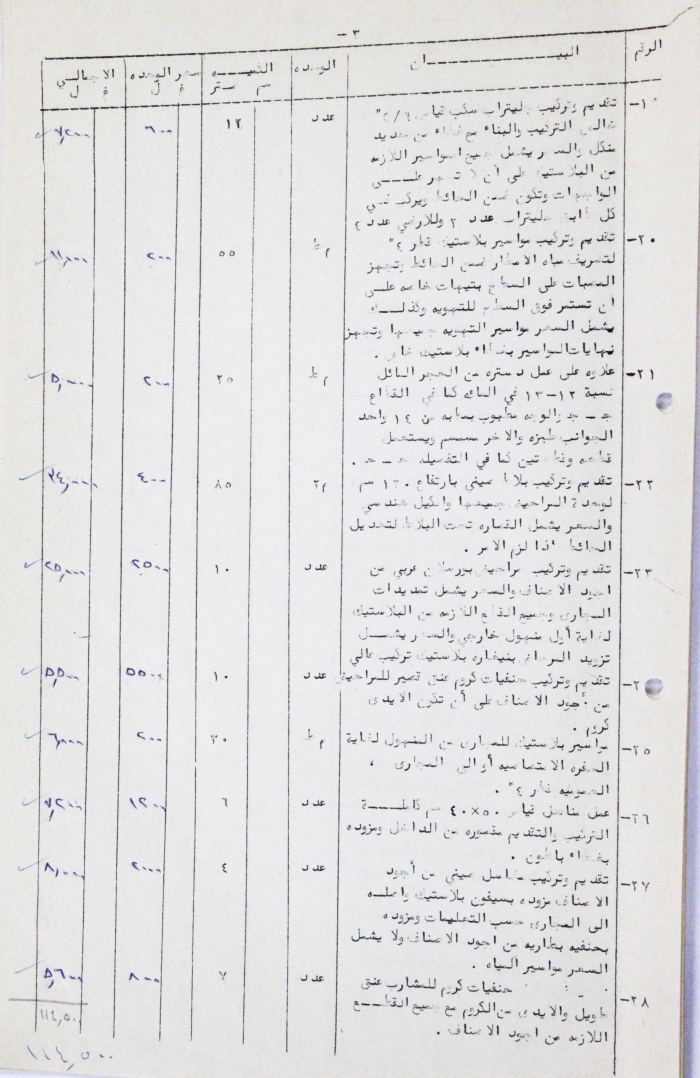 ٣ -
الرقم البيـــــــان الوحده الكميـــه سعر الوحده الاجمالـــي
م ستر غ ل غ ل
١- تقديم وتركيب جليترات سكب قياس ٢/٦" عدد ١٢ ٦٠٠ ٧,٢٠٠
التركيب والبناء مع غطاء من حديد
والسعر يشمل جميع المواسير اللازمه
من البلاستيك على أن لا تظهر علـــى
الواجهات وتكون ضمن الحائط ويركب في
كل طابق جليترات عدد ٢ وللارضي عدد ٤
٢٠- تقديم وتركيب مواسير بلاستيك قطر ٤" م ط ٥٥ ٢٠٠ ١١,٠٠٠
لتصريف مياه الامطار ضمن الحائط وتجهز
المصبات على السطح بتيهات خاصه علـى
ان تستمر فوق السطح للتهويه وكذلـــك
يشمل السعر مواسير التهويه جميعها وتجهز
نهايات المواسير بغطاء بلاستيك خاص .
٢١- علاوه على عمل دستره من الحجر المائل م ط ٢٥ ٢٠٠ ٥,٠٠٠
نسبة ١٢-١٣ في المائه كما في القطاع
جـ - جـ والوجه مطبوب من ١٤ واحد
الجوانب طبزه والاخر مسمسم ويستعمل
قطعه وقطعتين كما في التفصيله حـ - حـ .
٢٢- تقديم وتركيب بلاط صيني بارتفاع ١٢٠ سم م٢ ٨٥ ٤٠٠ ٣٤,٠٠٠
لوحدة المراحيض جميعها والكيل هندسي
والسعر يشمل القصاره تحت البلاط لتعديل
الحائط اذا لزم الامر .
٢٣- تقديم وتركيب مراحيض بورسلان عربي من عدد ١٠ ٢٥٠٠ ٢٥,٠٠٠
اجود الاصناف والسعر يشمل تمديدات
المجارى وجميع القطع اللازمه من البلاستيك
لغاية أول منهول خارجي والسعر يشمــل
تزويد المرحاض بنيفاره بلاستيك تركيب عالي
٢- تقديم وتركيب حنفيات كروم عنق قصير للمراحيض عدد ١٠ ٥٥٠ ٥,٥٠٠
من أجود الاصناف على أن تكون الايدى
كروم .
٢٥- مواسير بلاستيك للمجارى من المنهول لغاية م ط ٣٠ ٢٠٠ ٦,٠٠٠
الحفره الامتصاصيه أو الى المجارى ،
العموميه قطر ٤" .
٢٦- عمل مناهل قياس ٥٠×٤٠ سم كاملـــة عدد ٦ ١٢٠٠ ٧,٢٠٠
التركيب والتقديم مقصوره من الداخل ومزوده
بغطاء باطون .
٢٧- تقديم وتركيب مغاسل صيني من أجود عدد ٤ ٢٠٠٠ ٨,٠٠٠
الاصناف مزوده بسيفون بلاستيك واصلـه
الى المجارى حسب التعليمات ومزوده
بحنفيه بطاريه من اجود الاصناف ولا يشمل
السعر مواسير المياه .
٢٨- حنفيات كروم للمشارب عنق عدد ٧ ٨٠٠ ٥,٦٠٠
طويل والايدى من الكروم مع جميع القطــع
اللازمه من اجود الاصناف .
١١٤,٥٠٠
١١٤,٥٠٠